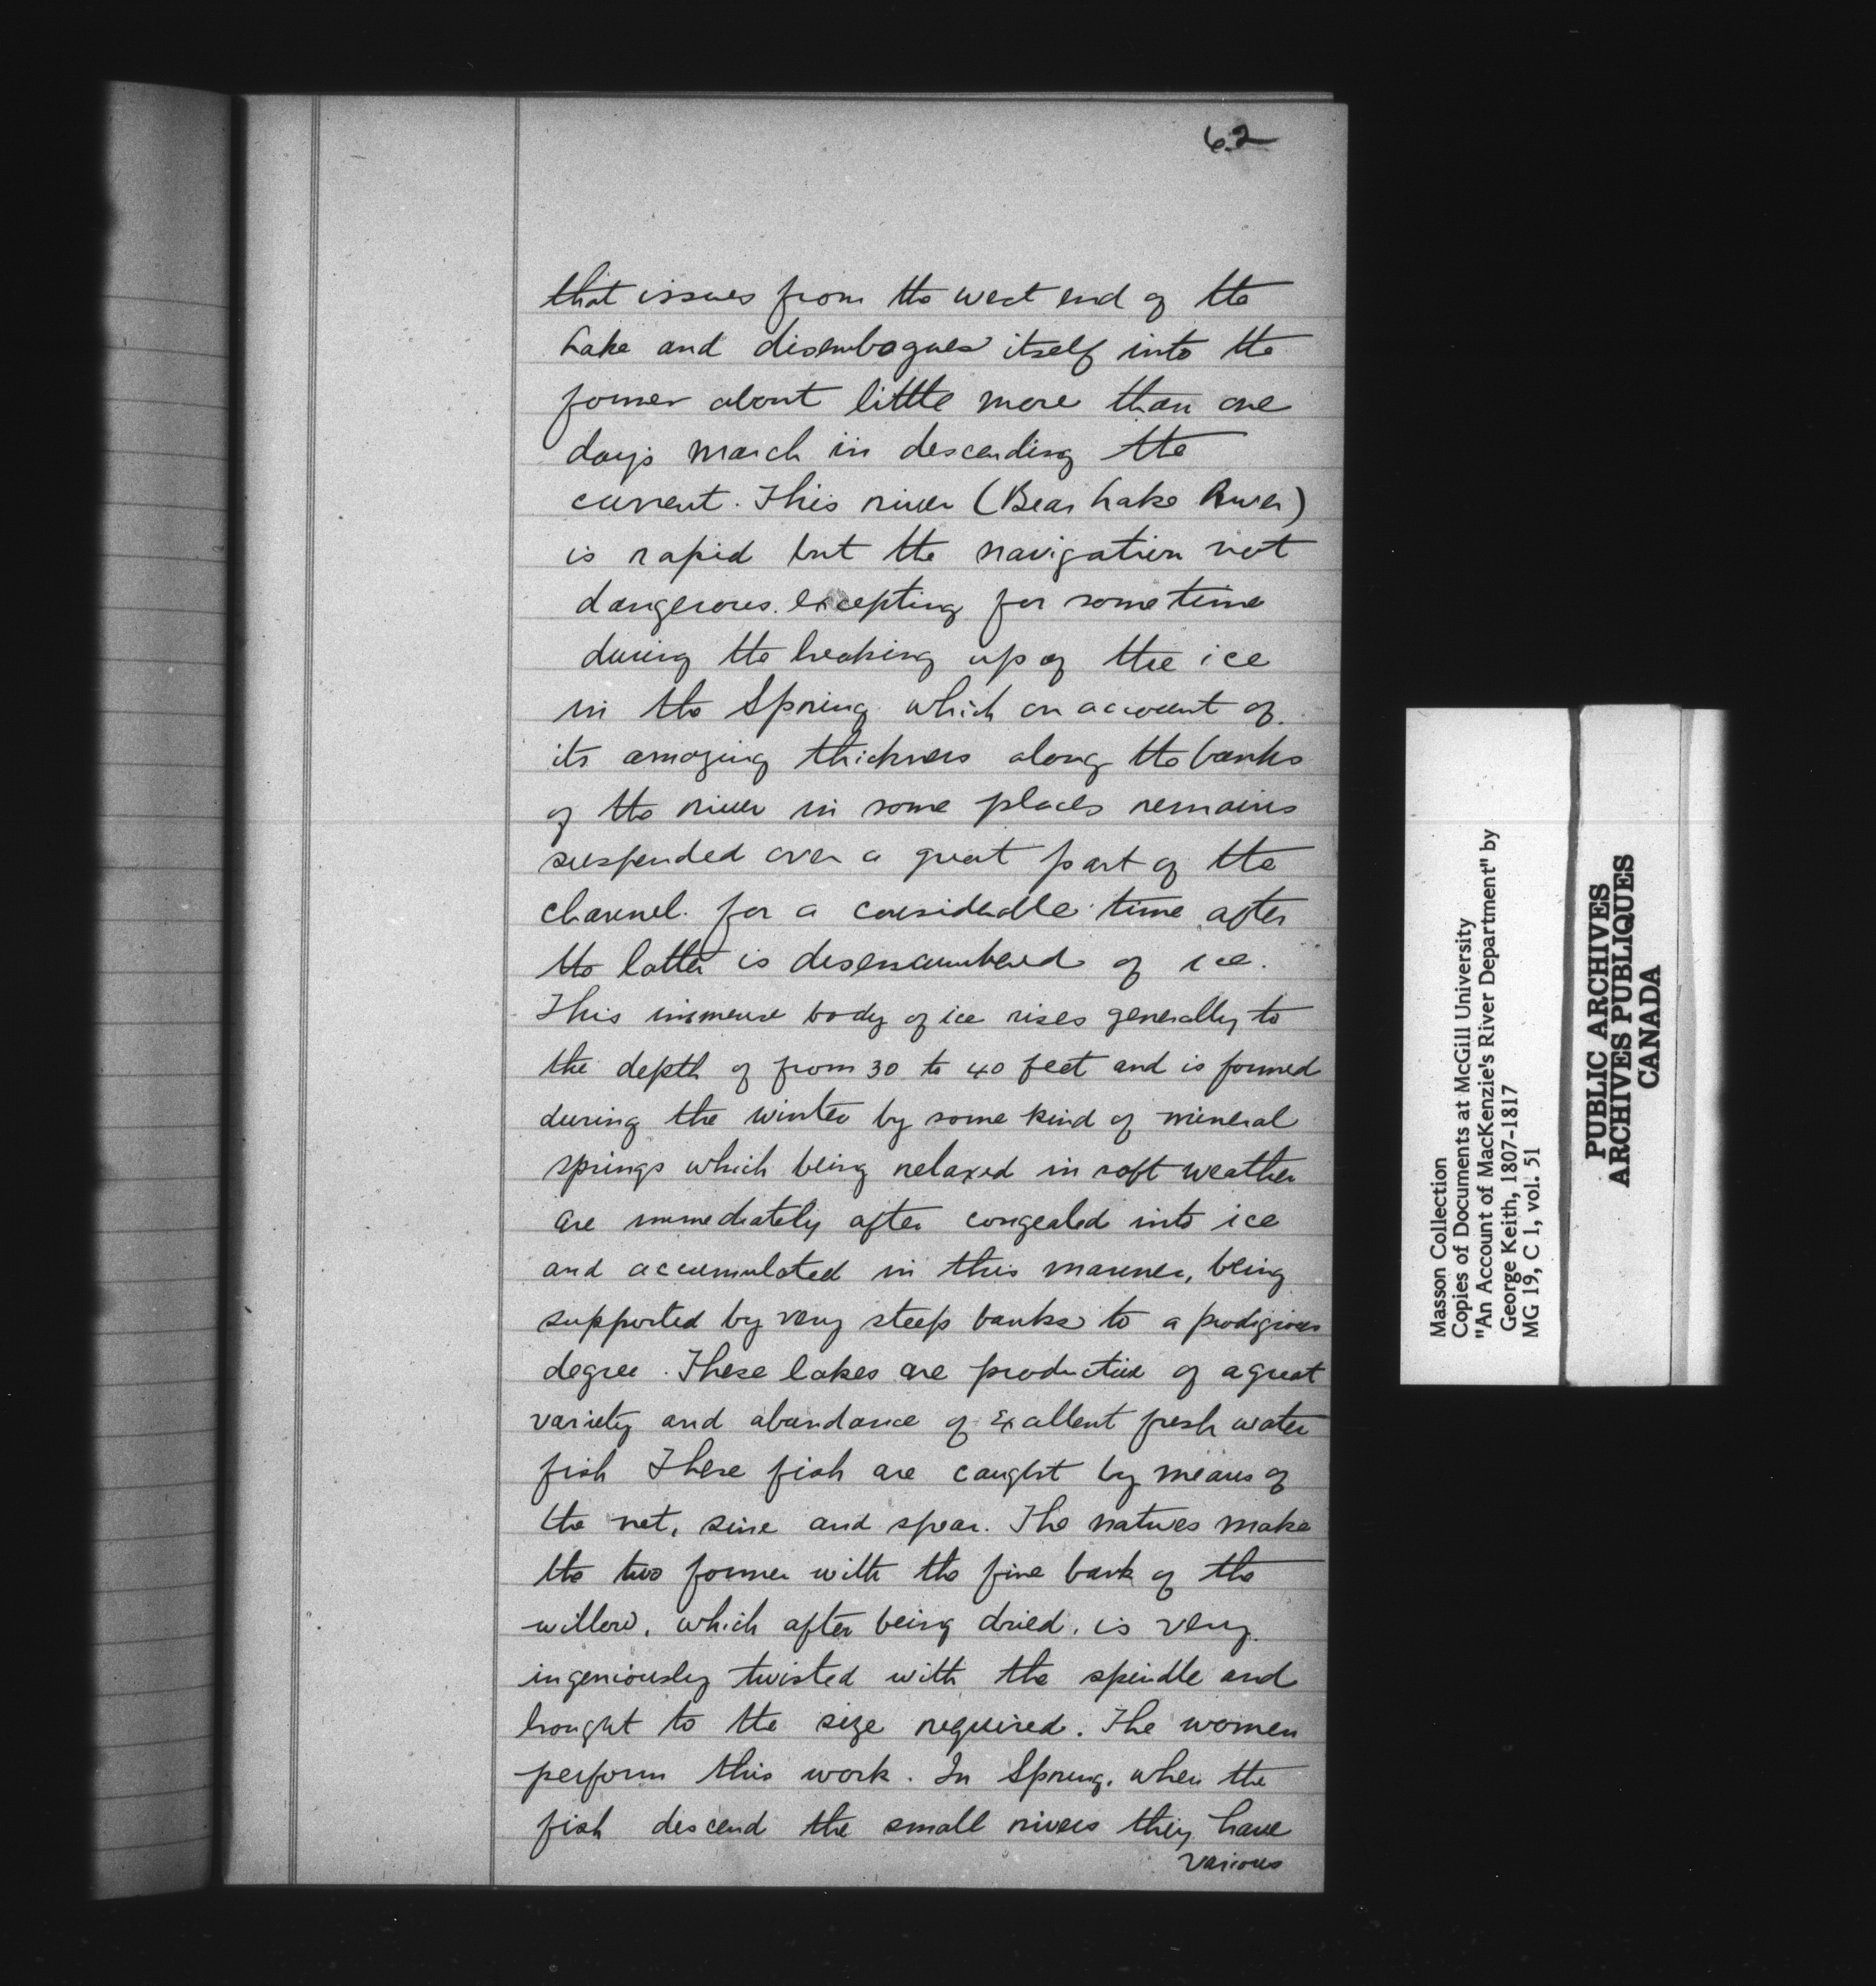 62
that issues from the west end of the
Lake and disembogues itself into the
former about little more than one
day's march in descending the
current. This river (Bear Lake River)
is rapid but the navigation not
dangerous. excepting for some time
during the breaking up of the ice
in the Spring which on account of
its amazing thickness along the banks
of the river in some places remains
suspended over a great part of the
channel. for a considerable time after
the latter is disencumbered of ice.
This immense body of ice rises generally to
the depth of from 30 to 40 feet and is formed
during the winter by some kind of mineral
springs which being relaxed in soft weather
are immediately after congealed into ice
and accumulated in this manner, being
supported by very steep banks to a prodigious
degree. These lakes are productive of a great
variety and abundance of Excellent fresh water
fish These fish are caught by means of
the net, sine and spear. The natives make
the two former with the fine bark of the
willow, which after being dried, is very
ingeniously twisted with the spindle and
brought to the size required. The women
perform this work. In Spring, when the
fish descend the small rivers they have
various
Masson Collection
Copies of Documents at McGill University
"An Account of MacKenzie's River Department" by
George Keith, 1807-1817
MG 19, C 1, vol. 51
PUBLIC ARCHIVES
ARCHIVES PUBLIQUES
CANADA